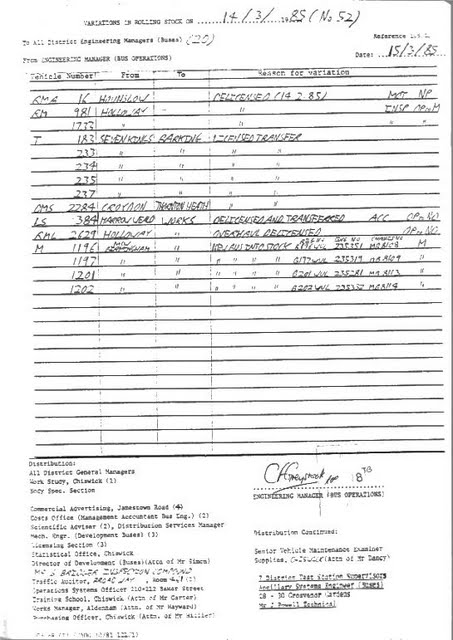 VARIATIONS IN ROLLING STOCK ON 14/3/1985 (No 52)
To All District Engineering Managers (Buses) (20)
Reference
From ENGINEERING MANAGER (BUS OPERATIONS)
Date: 15/3/85
Vehicle Number From To Reason for variation
RMA 16 HOUNSLOW DELICENSED (14.2.85) NP
RM 981 HOLLOWAY - " INSP OPnM
1733 " "
T 183 SEVENKINGS BARKING LICENSED TRANSFER
233 " " " "
234 " " " "
235 " " " "
237 " " " "
DMS 2284 CROYDON THORNTON HEATH " "
LS 384 HARROW WEALD WORKS DELICENSED AND TRANSFERRED ACC OPn NO.
RML 2629 HOLLOWAY " OVERHAUL DELICENSED OPn NO.
M 1196 " NEW BUS INTO STOCK 235351 M
1197 " " " " " " 235319 "
1201 " " " " " " 235281 "
1202 " " " " " " 235352 "
ENGINEERING MANAGER (BUS OPERATIONS)
Distribution:
All District General Managers
Work Study, Chiswick (1)
Body Spec. Section
Commercial Advertising, Jamestown Road (4)
Costs Office (Management Accountant Bus Eng.) (2)
Scientific Adviser (2), Distribution Services Manager
Mech. Engr. (Development Buses) (3)
Licensing Section (3)
Statistical Office, Chiswick
Director of Development (Buses)(Attn of Mr Simon)
INSPECTION COMPOUND
Traffic Auditor, BROADWAY, Room
Operations Systems Officer 210-212 Baker Street
Training School, Chiswick (Attn of Mr Carter)
Works Manager, Aldenham (Attn. of Mr Hayward)
Purchasing Officer, Chiswick (Attn. of Mr
Distribution Continued:
Senior Vehicle Maintenance Examiner
Supplies, CHISWICK (Attn of Mr Dancy)
7 District Test Station Supervisors
Ancillary Systems Engineer (Buses)
28 - 30 Grosvenor Gardens
Mr J Powell Technical